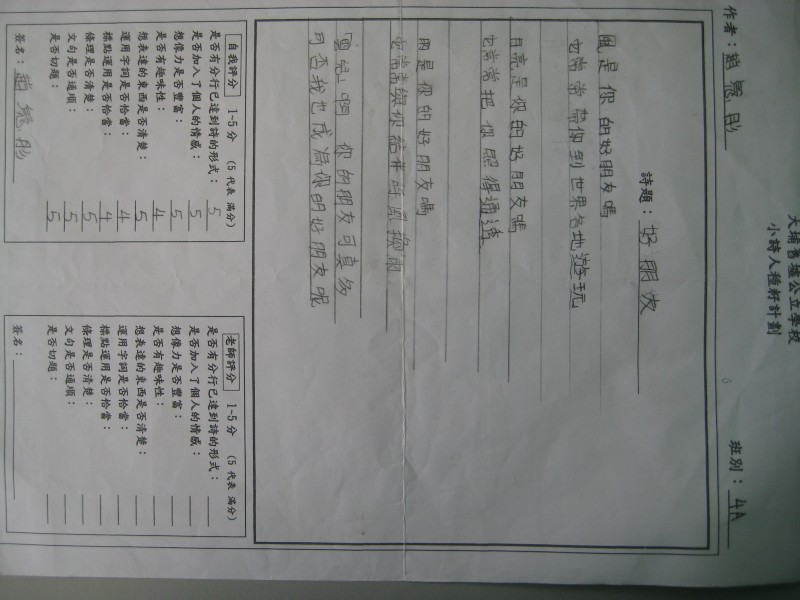 大埔舊墟公立學校
小詩人種籽計劃
作者：趙
班別：4A
詩題：好朋友
風是你的好朋友嗎
它常常帶你到世界各地遊玩
月亮是你的好朋友嗎
它常常把你照得通透
雨是你的好朋友嗎
它常常與你結伴
「雲兒」啊 你的朋友可真多
可否我也成為你的好朋友呢
自我評分 1-5分 (5代表滿分)
是否有分行已達到詩的形式：5
是否加入了個人的情感：5
想像力是否豐富：5
是否有趣味性：4
想表達的東西是否清楚：5
運用字詞是否恰當：4
標點運用是否恰當：4
條理是否清楚：5
文句是否通順：5
是否切題：5
簽名：趙
老師評分 1-5分 (5代表滿分)
是否有分行已達到詩的形式：
是否加入了個人的情感：
想像力是否豐富：
是否有趣味性：
想表達的東西是否清楚：
運用字詞是否恰當：
標點運用是否恰當：
條理是否清楚：
文句是否通順：
是否切題：
簽名：